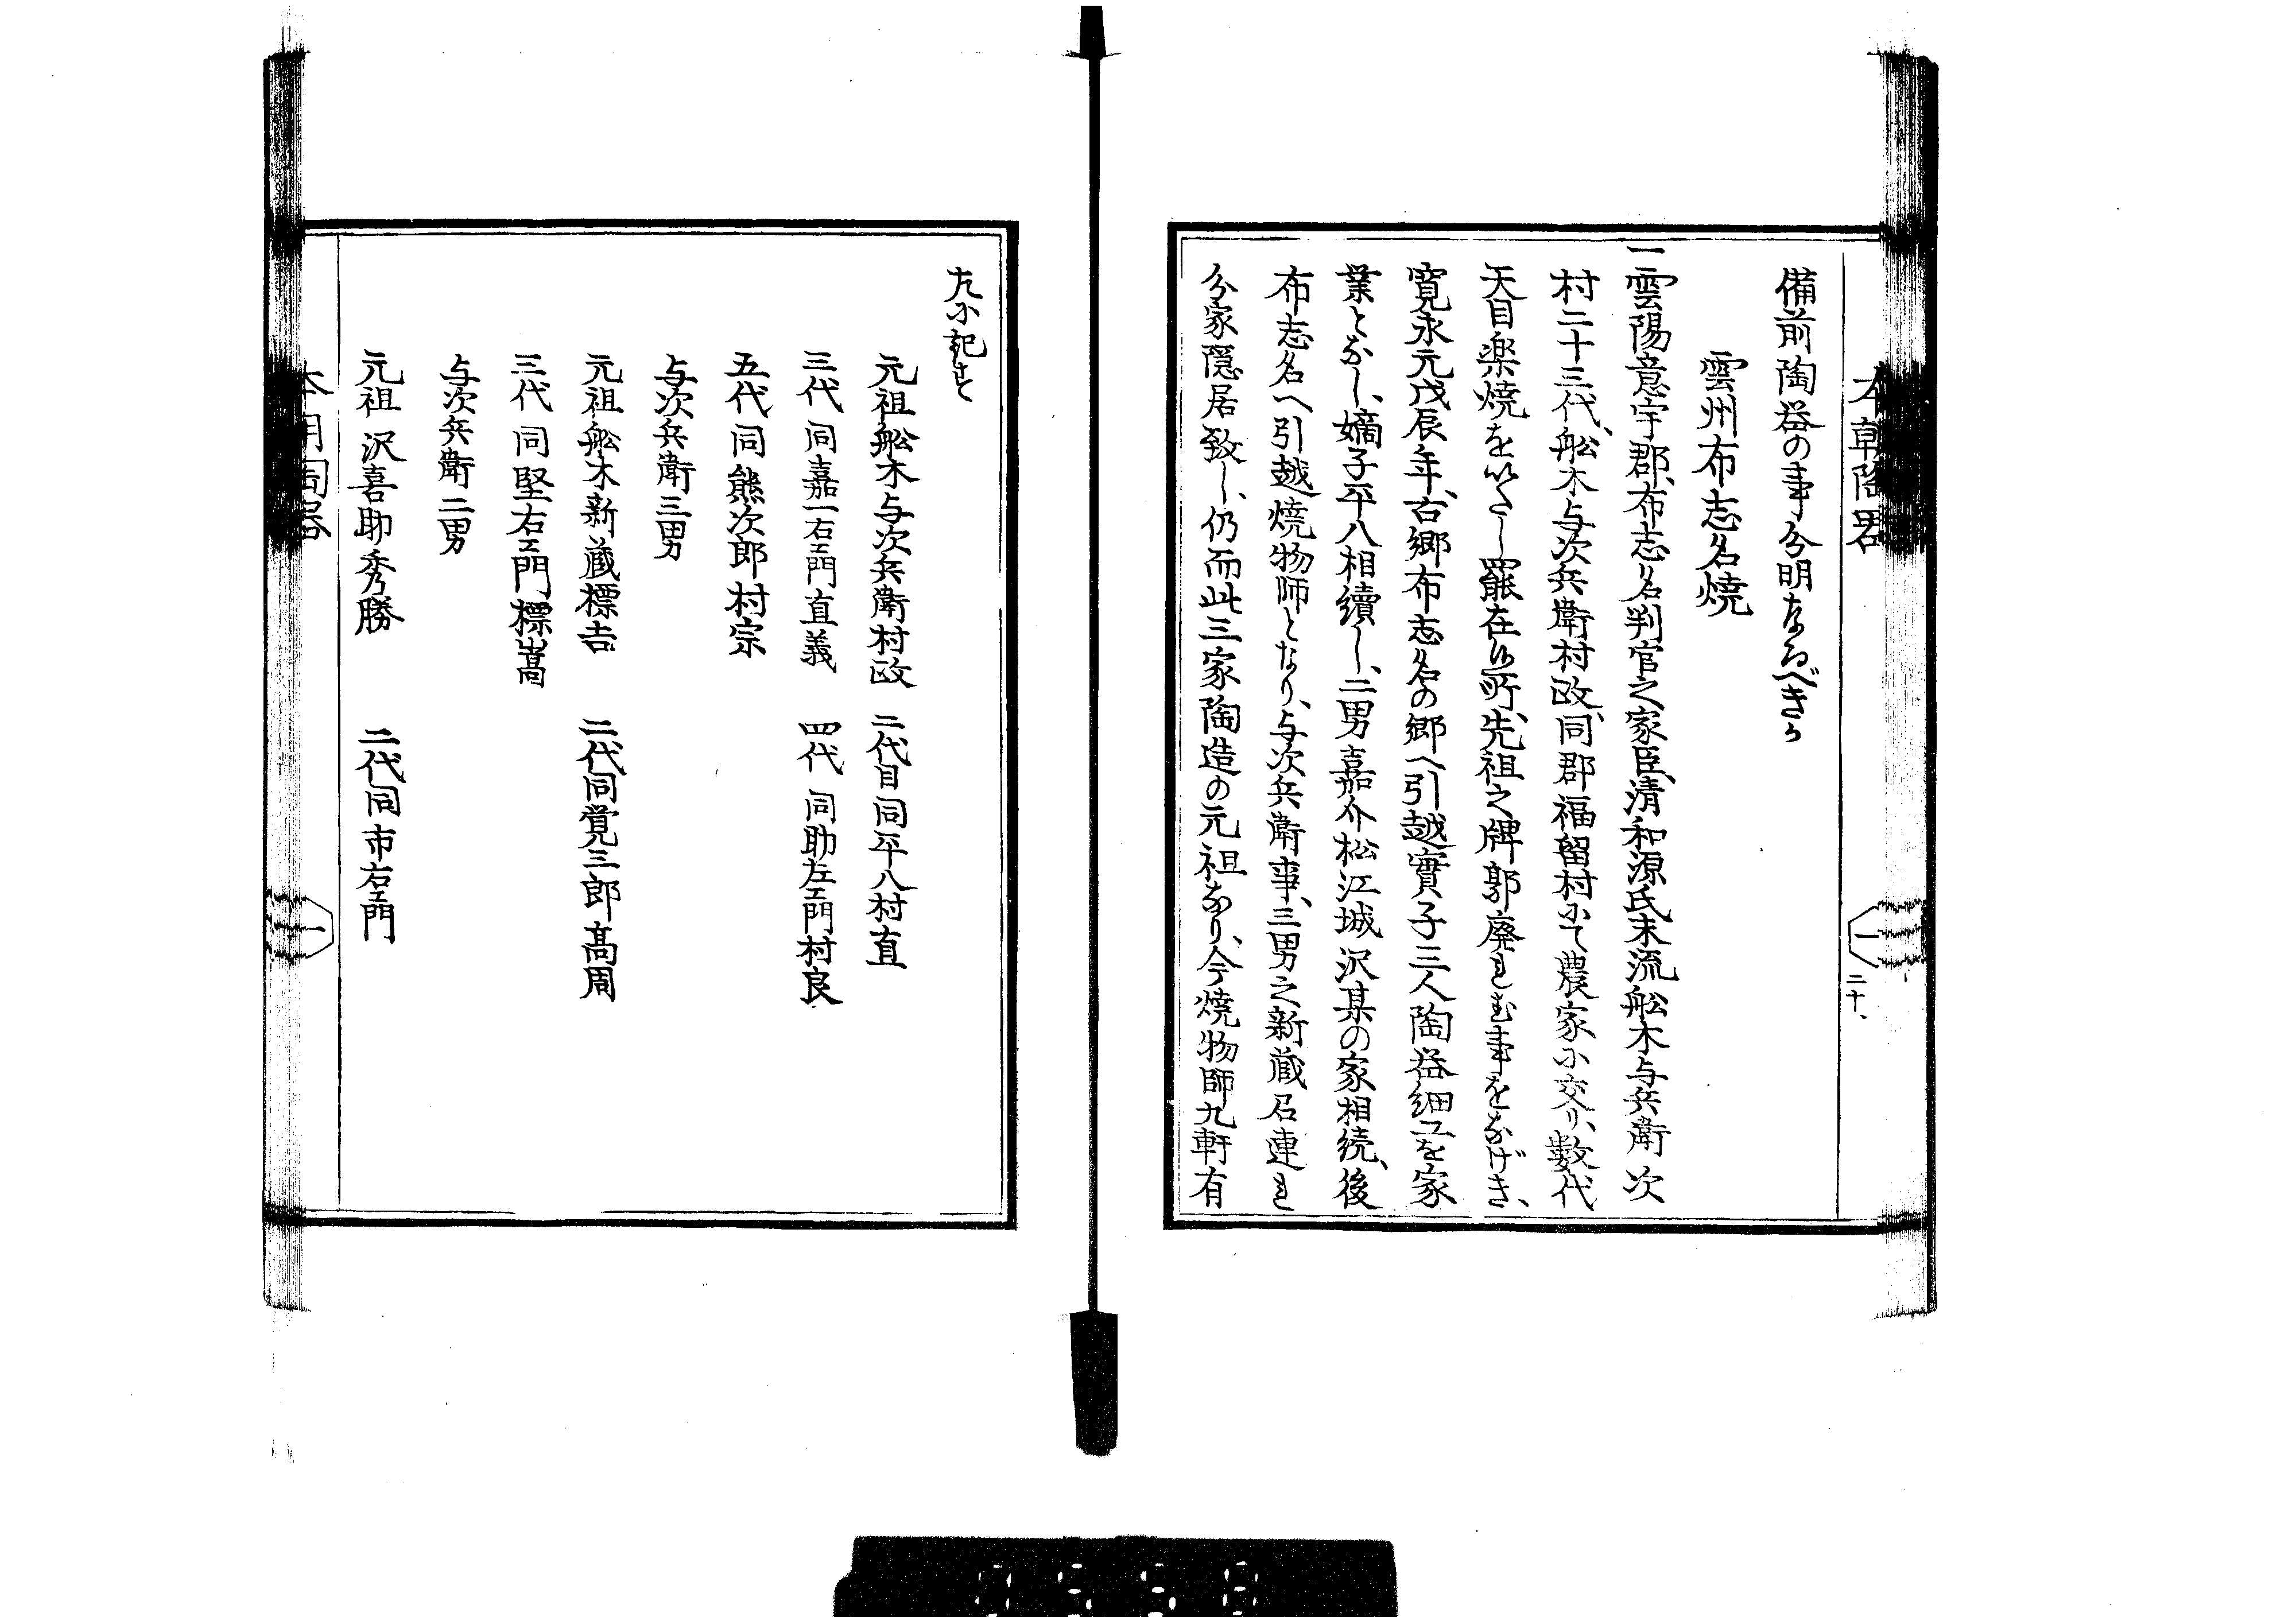 本朝陶器
二十
備前陶器の事分明なるべきか
雲州布志名焼
一雲陽意宇郡、布志名判官之家臣、清和源氏末流舩木与兵衛次
村二十三代、舩木与次兵衛村政、同郡福留村にて農家に交り、数代
天目楽焼をいたし罷在候所、先祖之牌郭廃れむ事をなげき、
寛永元戊辰年、古郷布志名の郷へ引越實子三人陶器細工を家
業となし、嫡子平八相續し、二男嘉介松江城沢某の家相続、後
布志名へ引越焼物師となり、与次兵衛事、三男之新蔵召連れ
分家隠居致し、仍而此三家陶造の元祖なり、今焼物師九軒有
左に記す
元祖舩木与次兵衛村政 二代目同平八村直
三代同嘉一右エ門直義 四代同助左エ門村良
五代同熊次郎村宗
与次兵衛三男
元祖舩木新蔵標吉 二代同覚三郎髙周
三代同堅右エ門標嵩
与次兵衛二男
元祖沢喜助秀勝 二代同市右エ門
本朝陶器